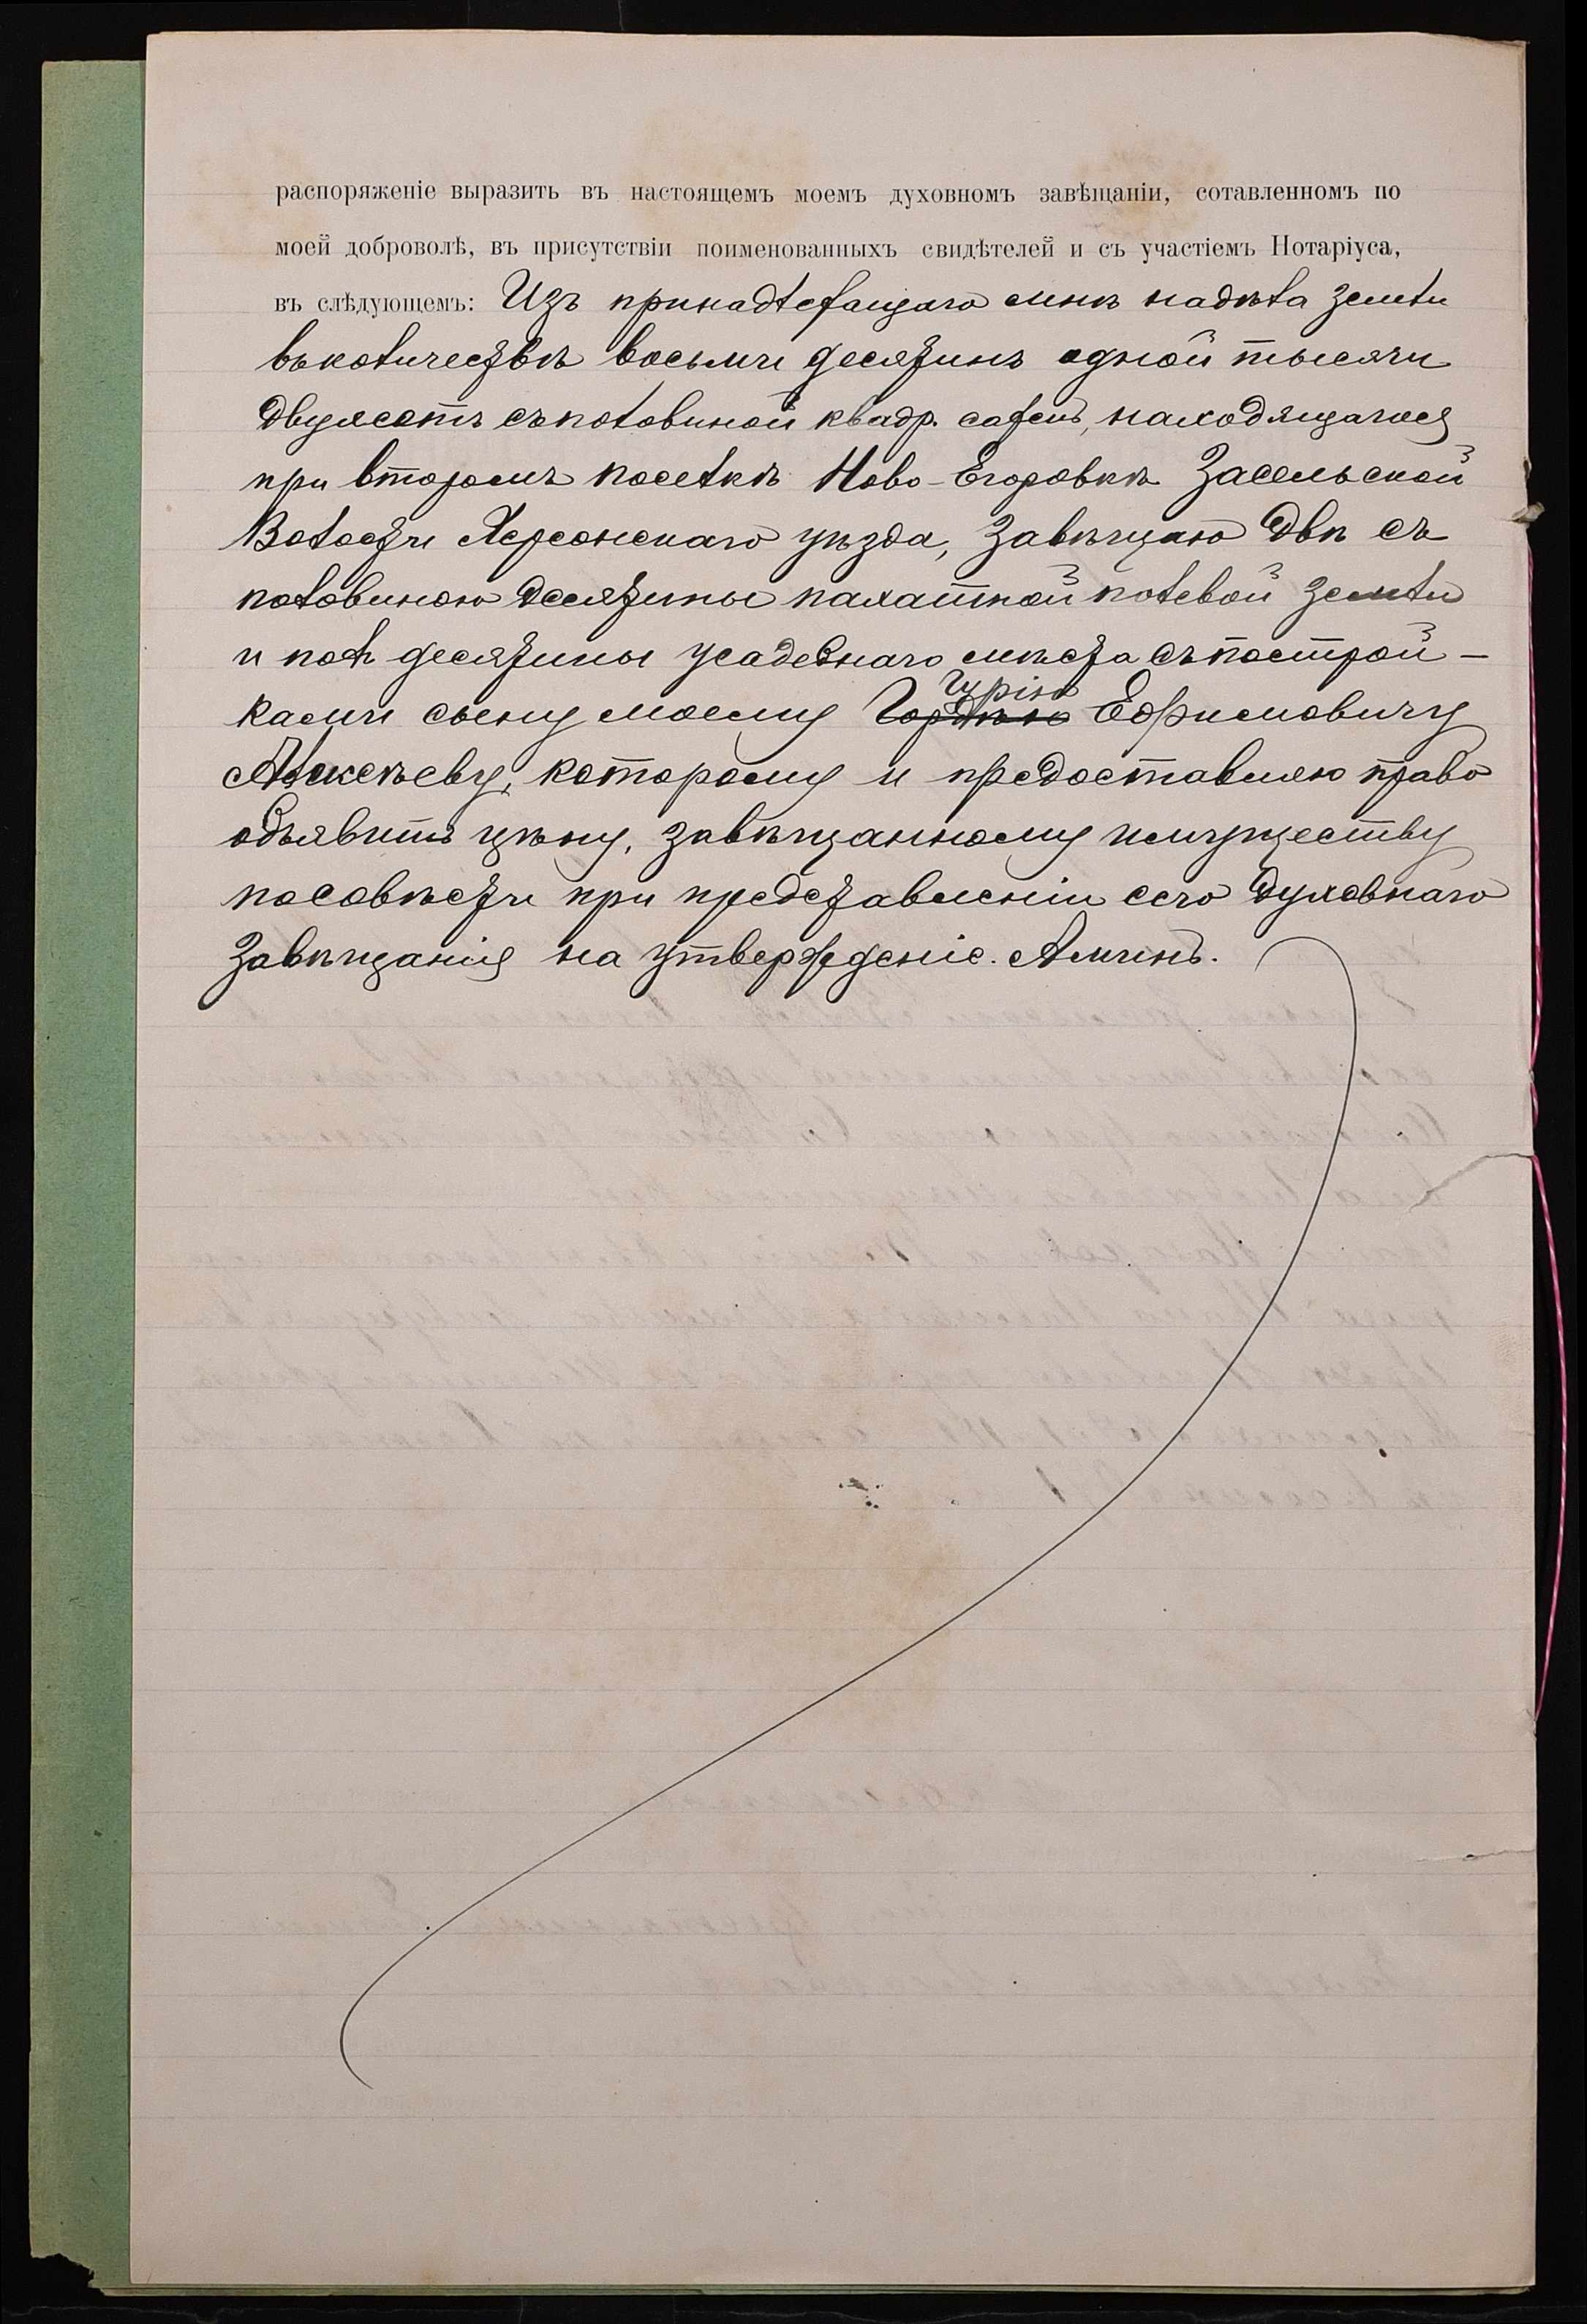 распоряженіе выразить въ настоящемъ моемъ духовномъ завѣщаніи, сотавленномъ по
моей доброволѣ, въ присутствіи поименованныхъ свидѣтелей и съ участіемъ Нотаріуса,
въ слѣдующемъ: Изъ принадлежащаго мнѣ надѣла земли
въ количествѣ восьми десятинъ одной тысячи
двухсотъ съ половиной квадр. сажень, находящагося
при второмъ поселкѣ Ново-Егоровкѣ Засельской
Волости Херсонскаго уѣзда, завѣщаю двѣ съ
половиною десятины пахатной полевой земли
и полъ десятины усадебнаго мѣста съ построй-
Гурію
ками сыну моему Гордѣю Ефимовичу
Алексѣеву, которому и предоставляю право
объявить цѣну, завѣщанному имуществу
по совѣсти при представленіи сего духовнаго
завѣщанія на утвержденіе. Аминь.